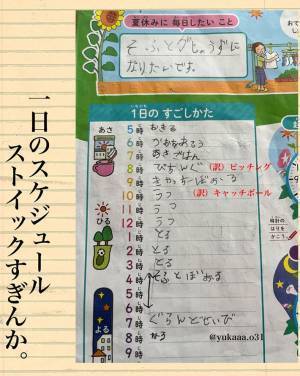 夏休みに 毎日したい こと
そふとがじょうずに
なりたいです。
1日の すごしかた
あさ
5時 おきる
6時
7時 あさごはん
8時 (訳) ピッチング
9時
10時 うつ (訳) キャッチボール
11時 うつ
ひる
12時 うつ
1時 とる
2時 とる
3時 とる
4時 そふとぼおる
5時
6時
よる
7時 ぐらんどせいび
8時 ねる
9時
時計の
はりを
かこう。
一日のスケジュール
ストイックすぎんか。
@yukaaa.o31